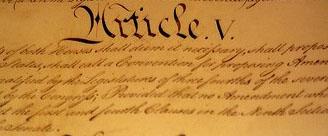 Article. V.
of both Houses shall deem it necessary, shall propos
States, shall call a Convention for proposing Amen
ratified by the Legislatures of three fourths of the sever
by the Congress; Provided that no Amendment wh
the first and fourth Clauses in the Ninth Section
Senate.